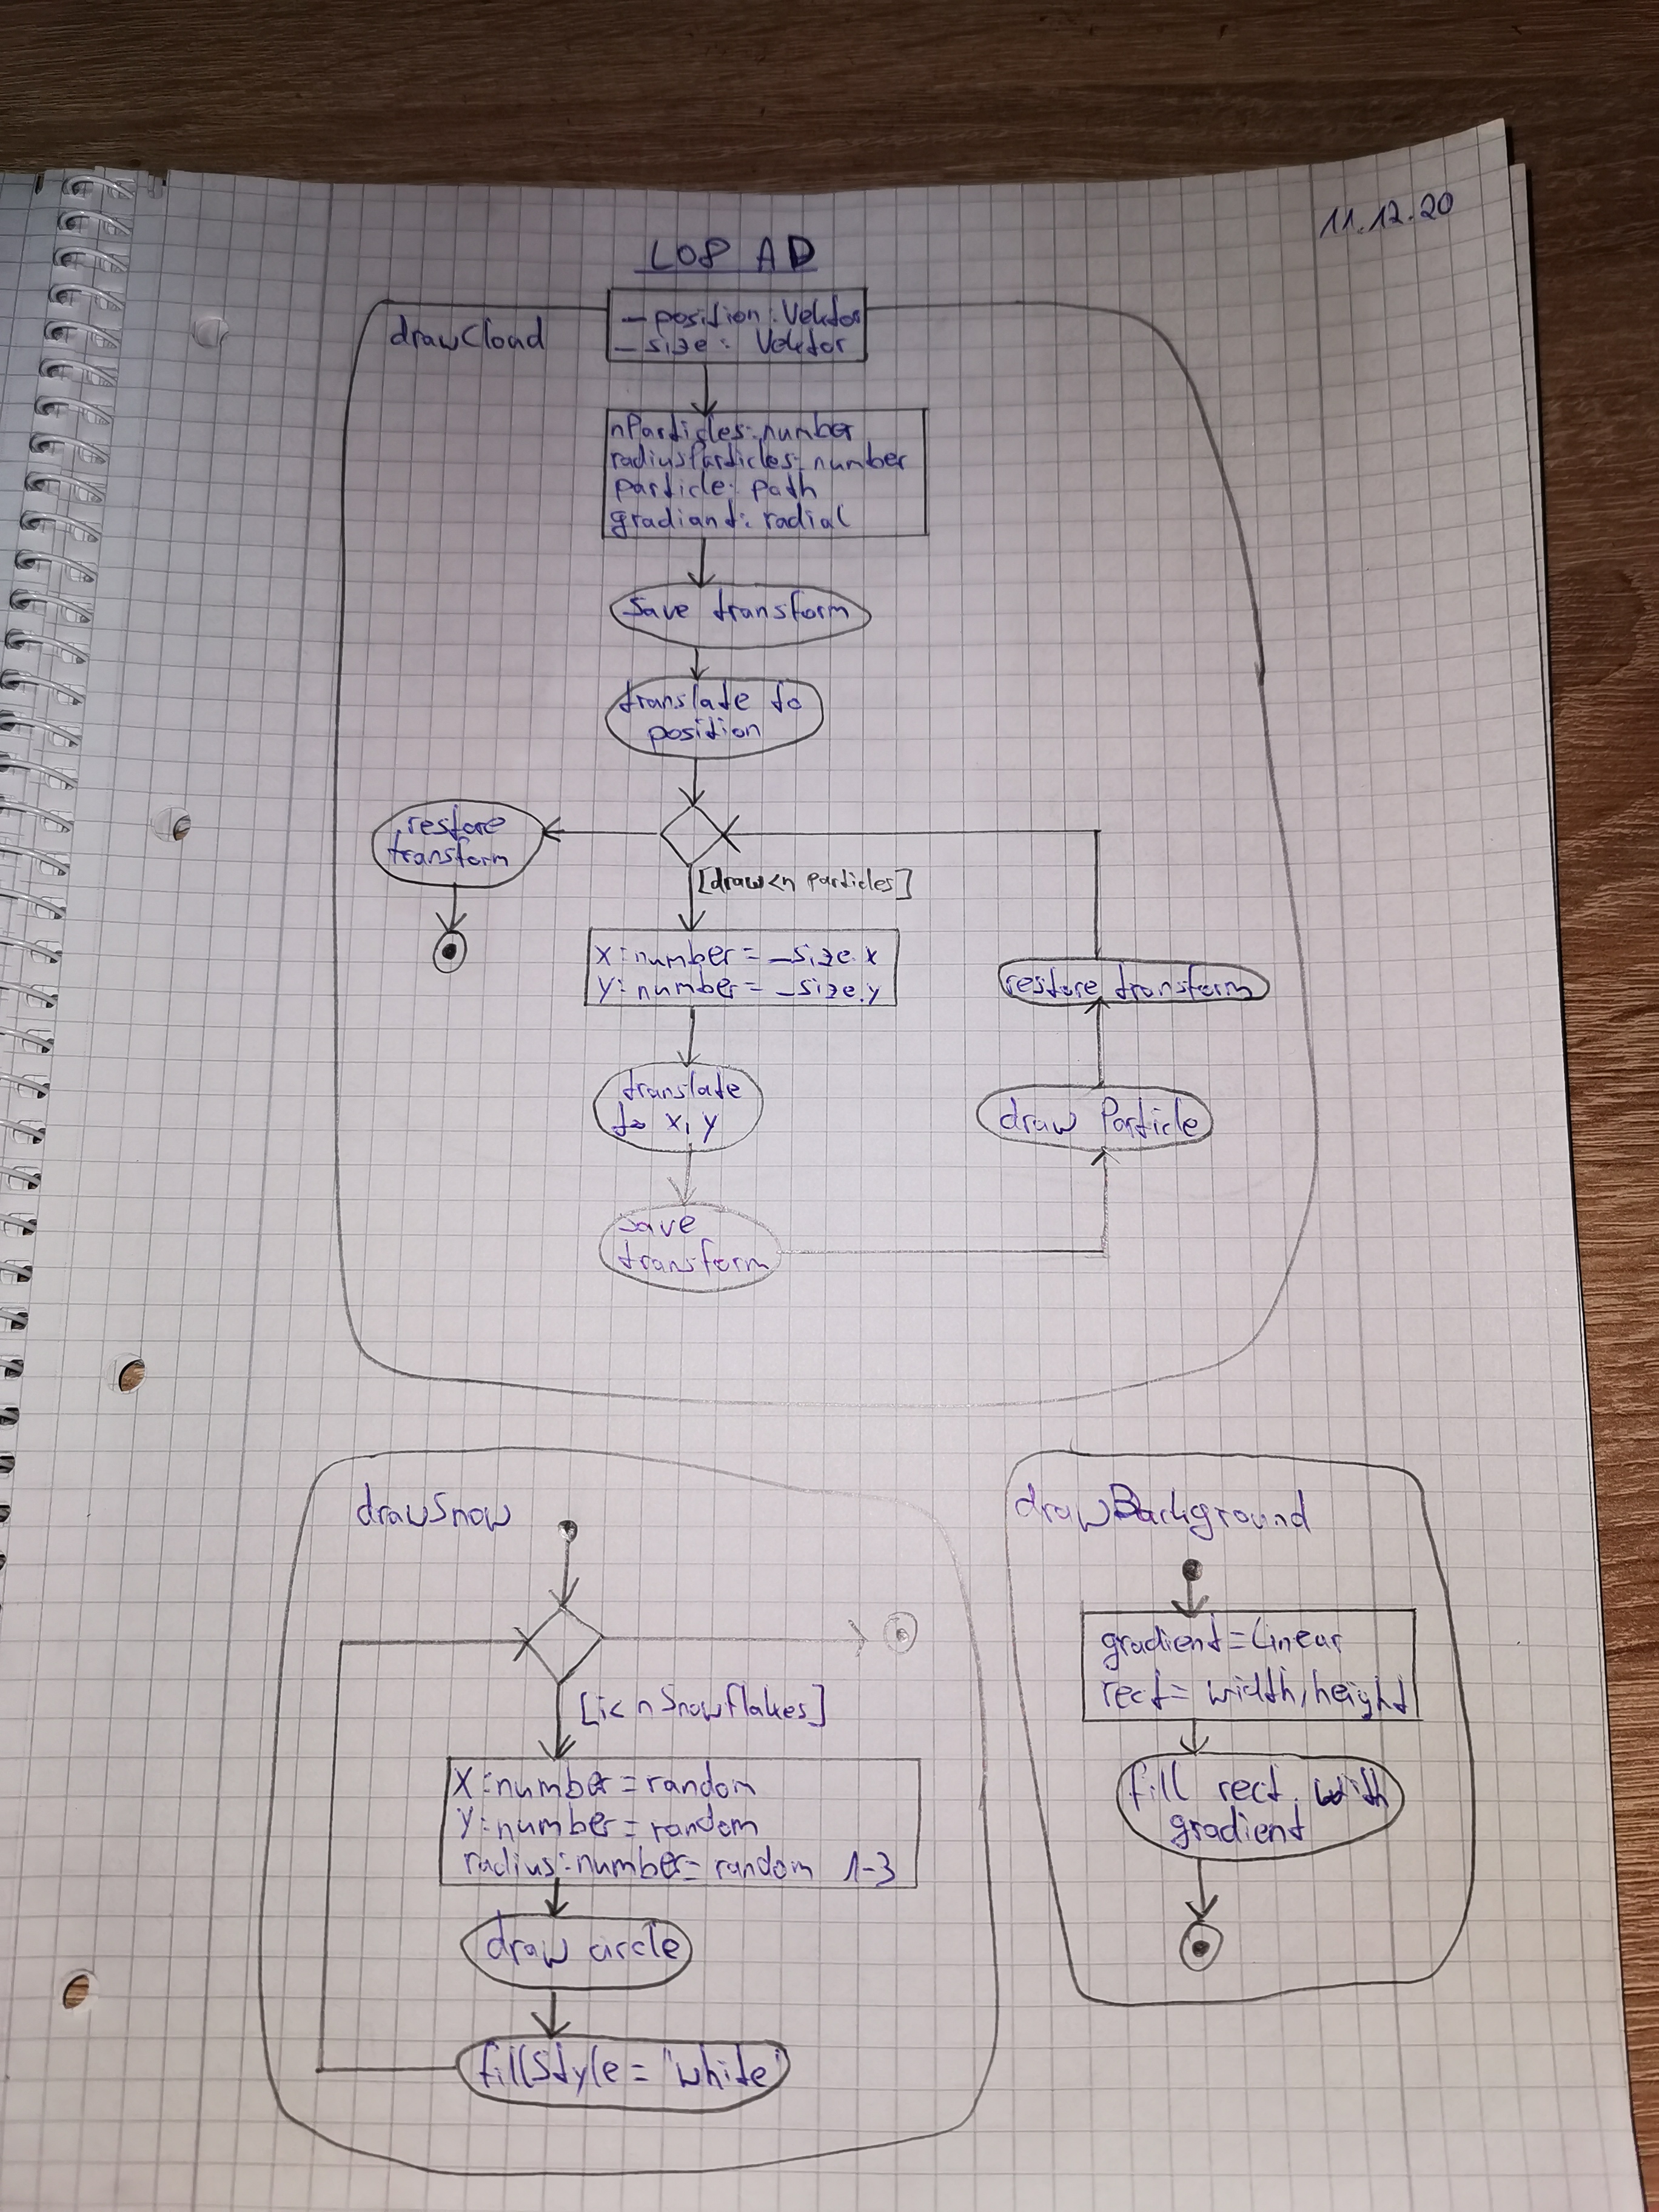 11.12.20
L08 AD
drawCloud
_position: Vektor
_size: Vektor
nParticles: number
radiusParticles: number
particle: path
gradiant: radial
Save transform
translate to
position
restore
transform
[draw<n Particles]
X: number = _size.x
Y: number = _size.y
restore transform
translate
to x, y
draw Particle
save
transform
drawSnow
[i< nSnowflakes]
X: number = random
Y: number = random
radius: number = random 1-3
draw circle
fillStyle = "white"
drawBackground
gradient = Linear
rect = width, height
fill rect. with
gradient